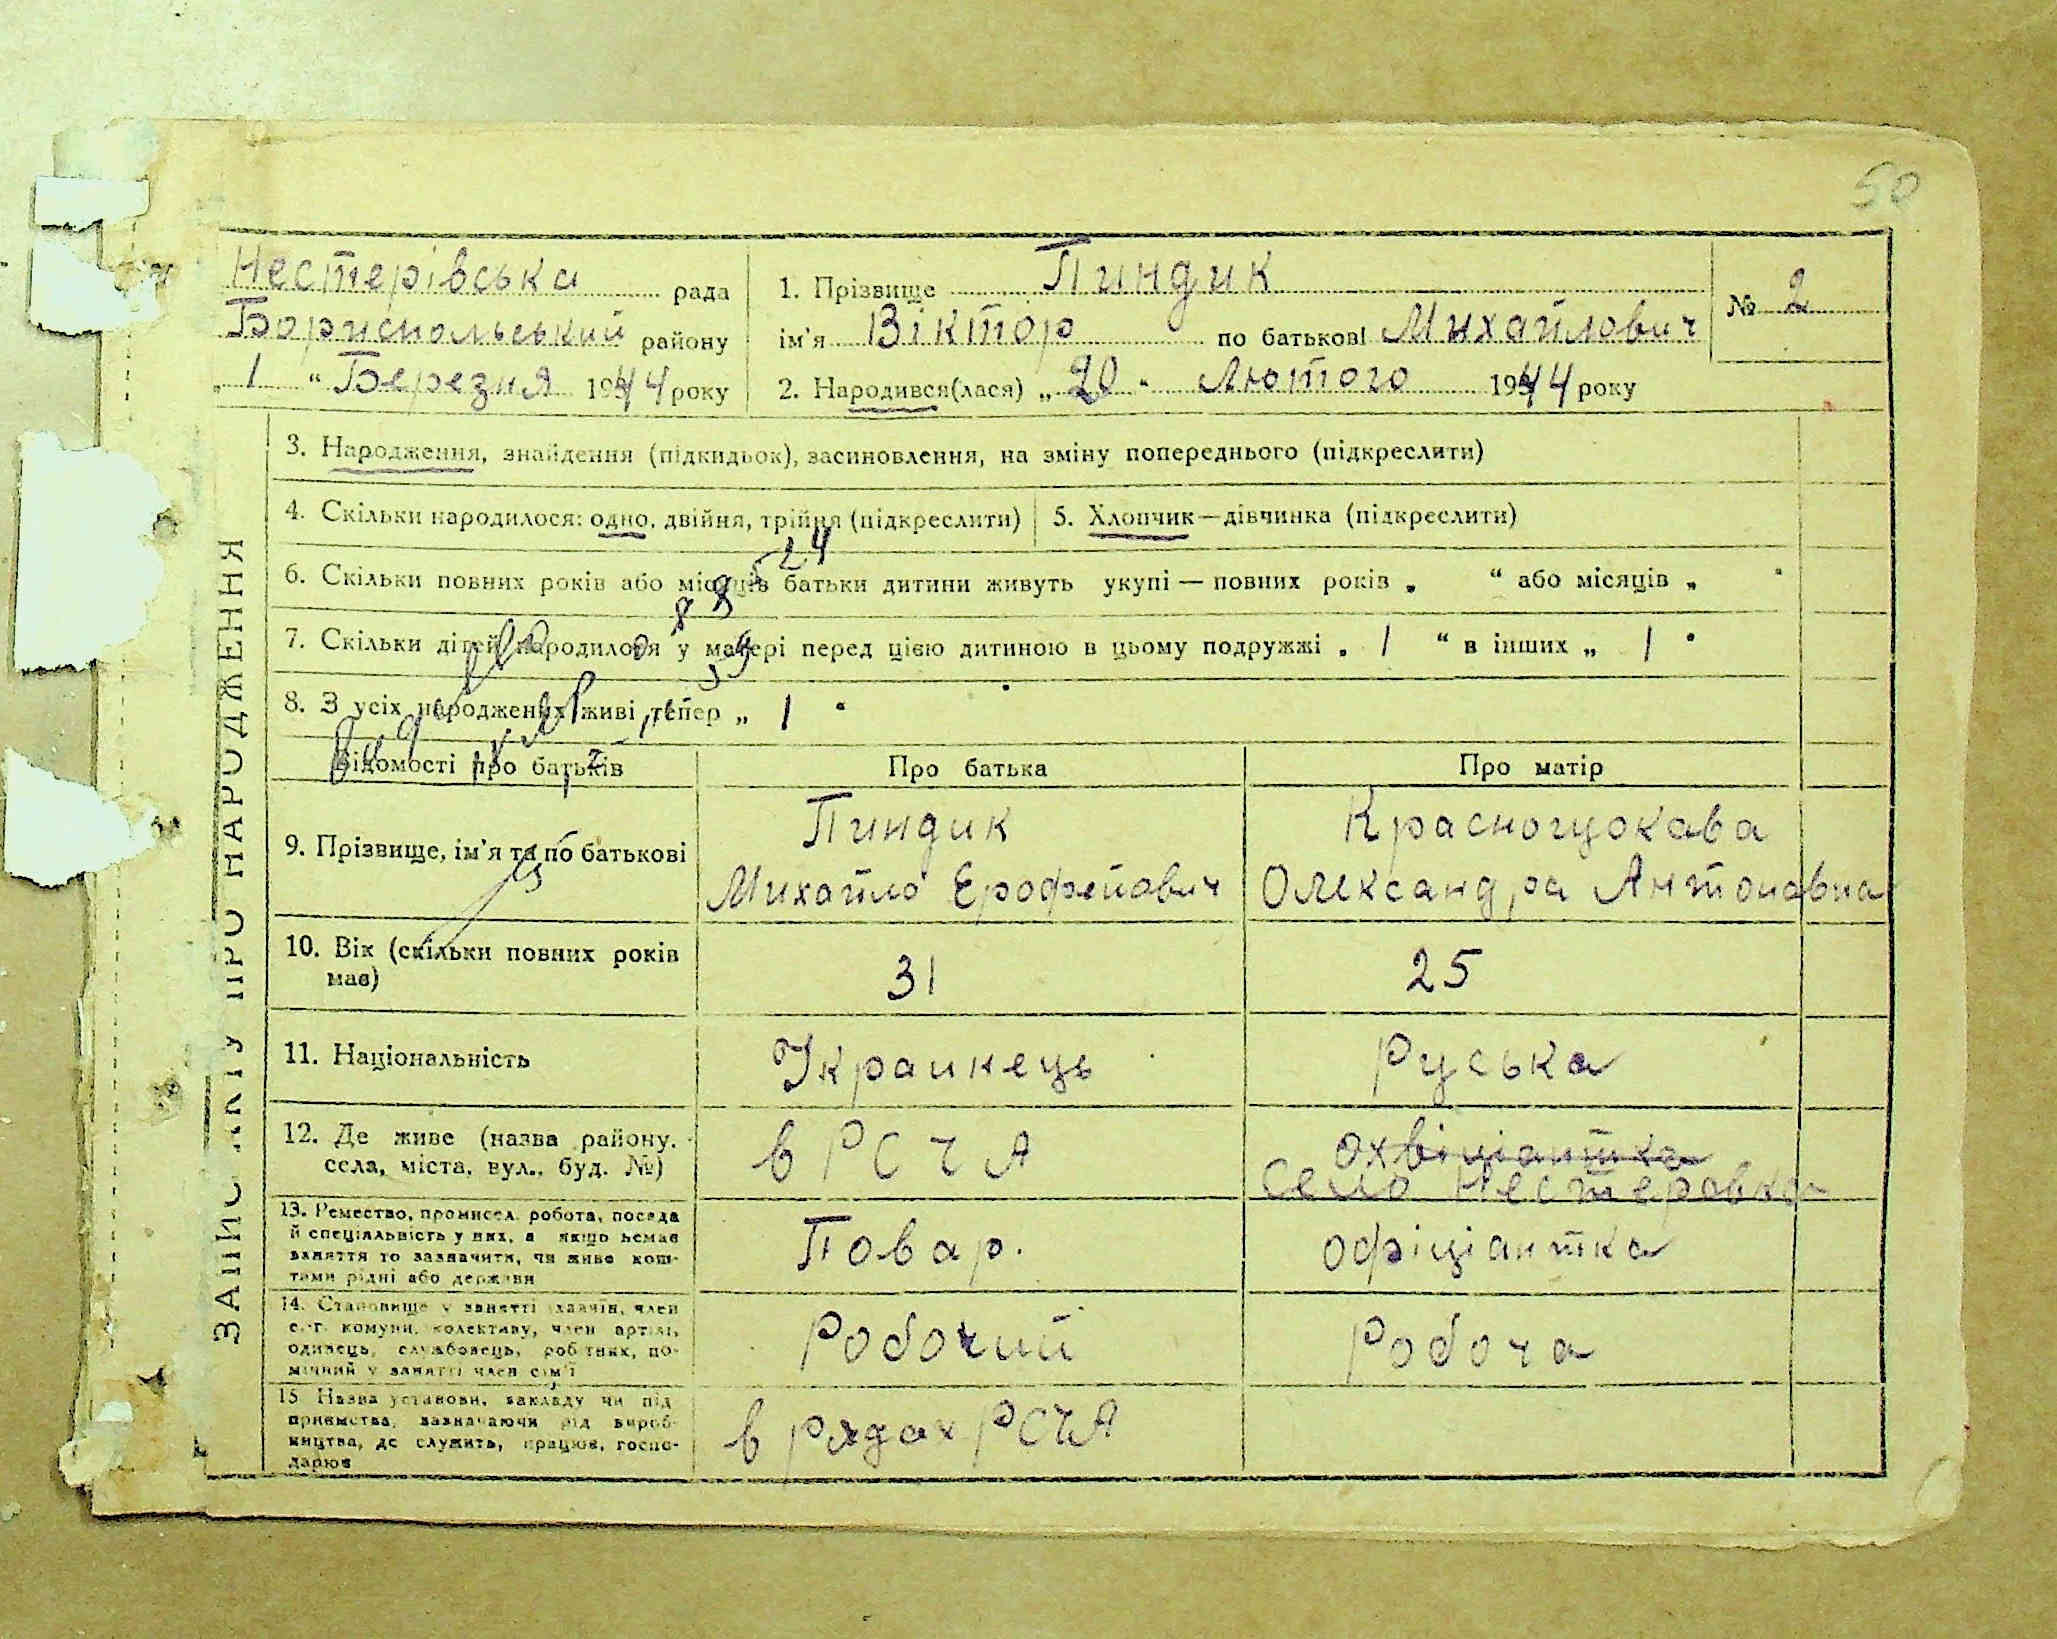 50
Нестерівська рада
Бориспольський району
„ 1 “ Березня 1944 року
1. Прізвище Пиндик
ім'я Віктор по батькові Михайлович
№ 2
2. Народився(лася) „ 20 “ Лютого 1944 року
ЗАПИС АКТУ ПРО НАРОДЖЕННЯ
3. Народження, знайдення (підкидьок), засиновлення, на зміну попереднього (підкреслити)
4. Скільки народилося: одно, двійня, трійня (підкреслити)
5. Хлопчик—дівчинка (підкреслити)
6. Скільки повних років або місяців батьки дитини живуть укупі — повних років „ “ або місяців „ “
7. Скільки дітей народилося у матері перед цією дитиною в цьому подружжі „ 1 “ в інших „ 1 “
8. З усіх народжених живі тепер „ 1 “
Відомості про батьків
Про батька
Про матір
9. Прізвище, ім'я та по батькові
Пиндик
Михайло Ерофейович
Олександра Антоновна
10. Вік (скільки повних років має)
31
25
11. Національність
Украинець
Руська
12. Де живе (назва району, села, міста, вул., буд. №)
в РСЧА
охвіціантка
село Нестеровка
13. Ремество, промисел, робота, посада
й спеціяльність у них, а якщо немає
заняття то зазначити, чи живе кош-
тами рідні або держави
Повар.
офіціантка
14. Становище у занятті (хазяїн, член
с.-г. комуни, колективу, член артілі,
одинець, службовець, робітник, по-
мічний у занятті член сім'ї
Робочий
Робоча
15 Назва установи, закладу чи під
приємства, зазначаючи рід вироб-
ництва, де служить, працює, госпо-
дарює
в рядах РСЧА